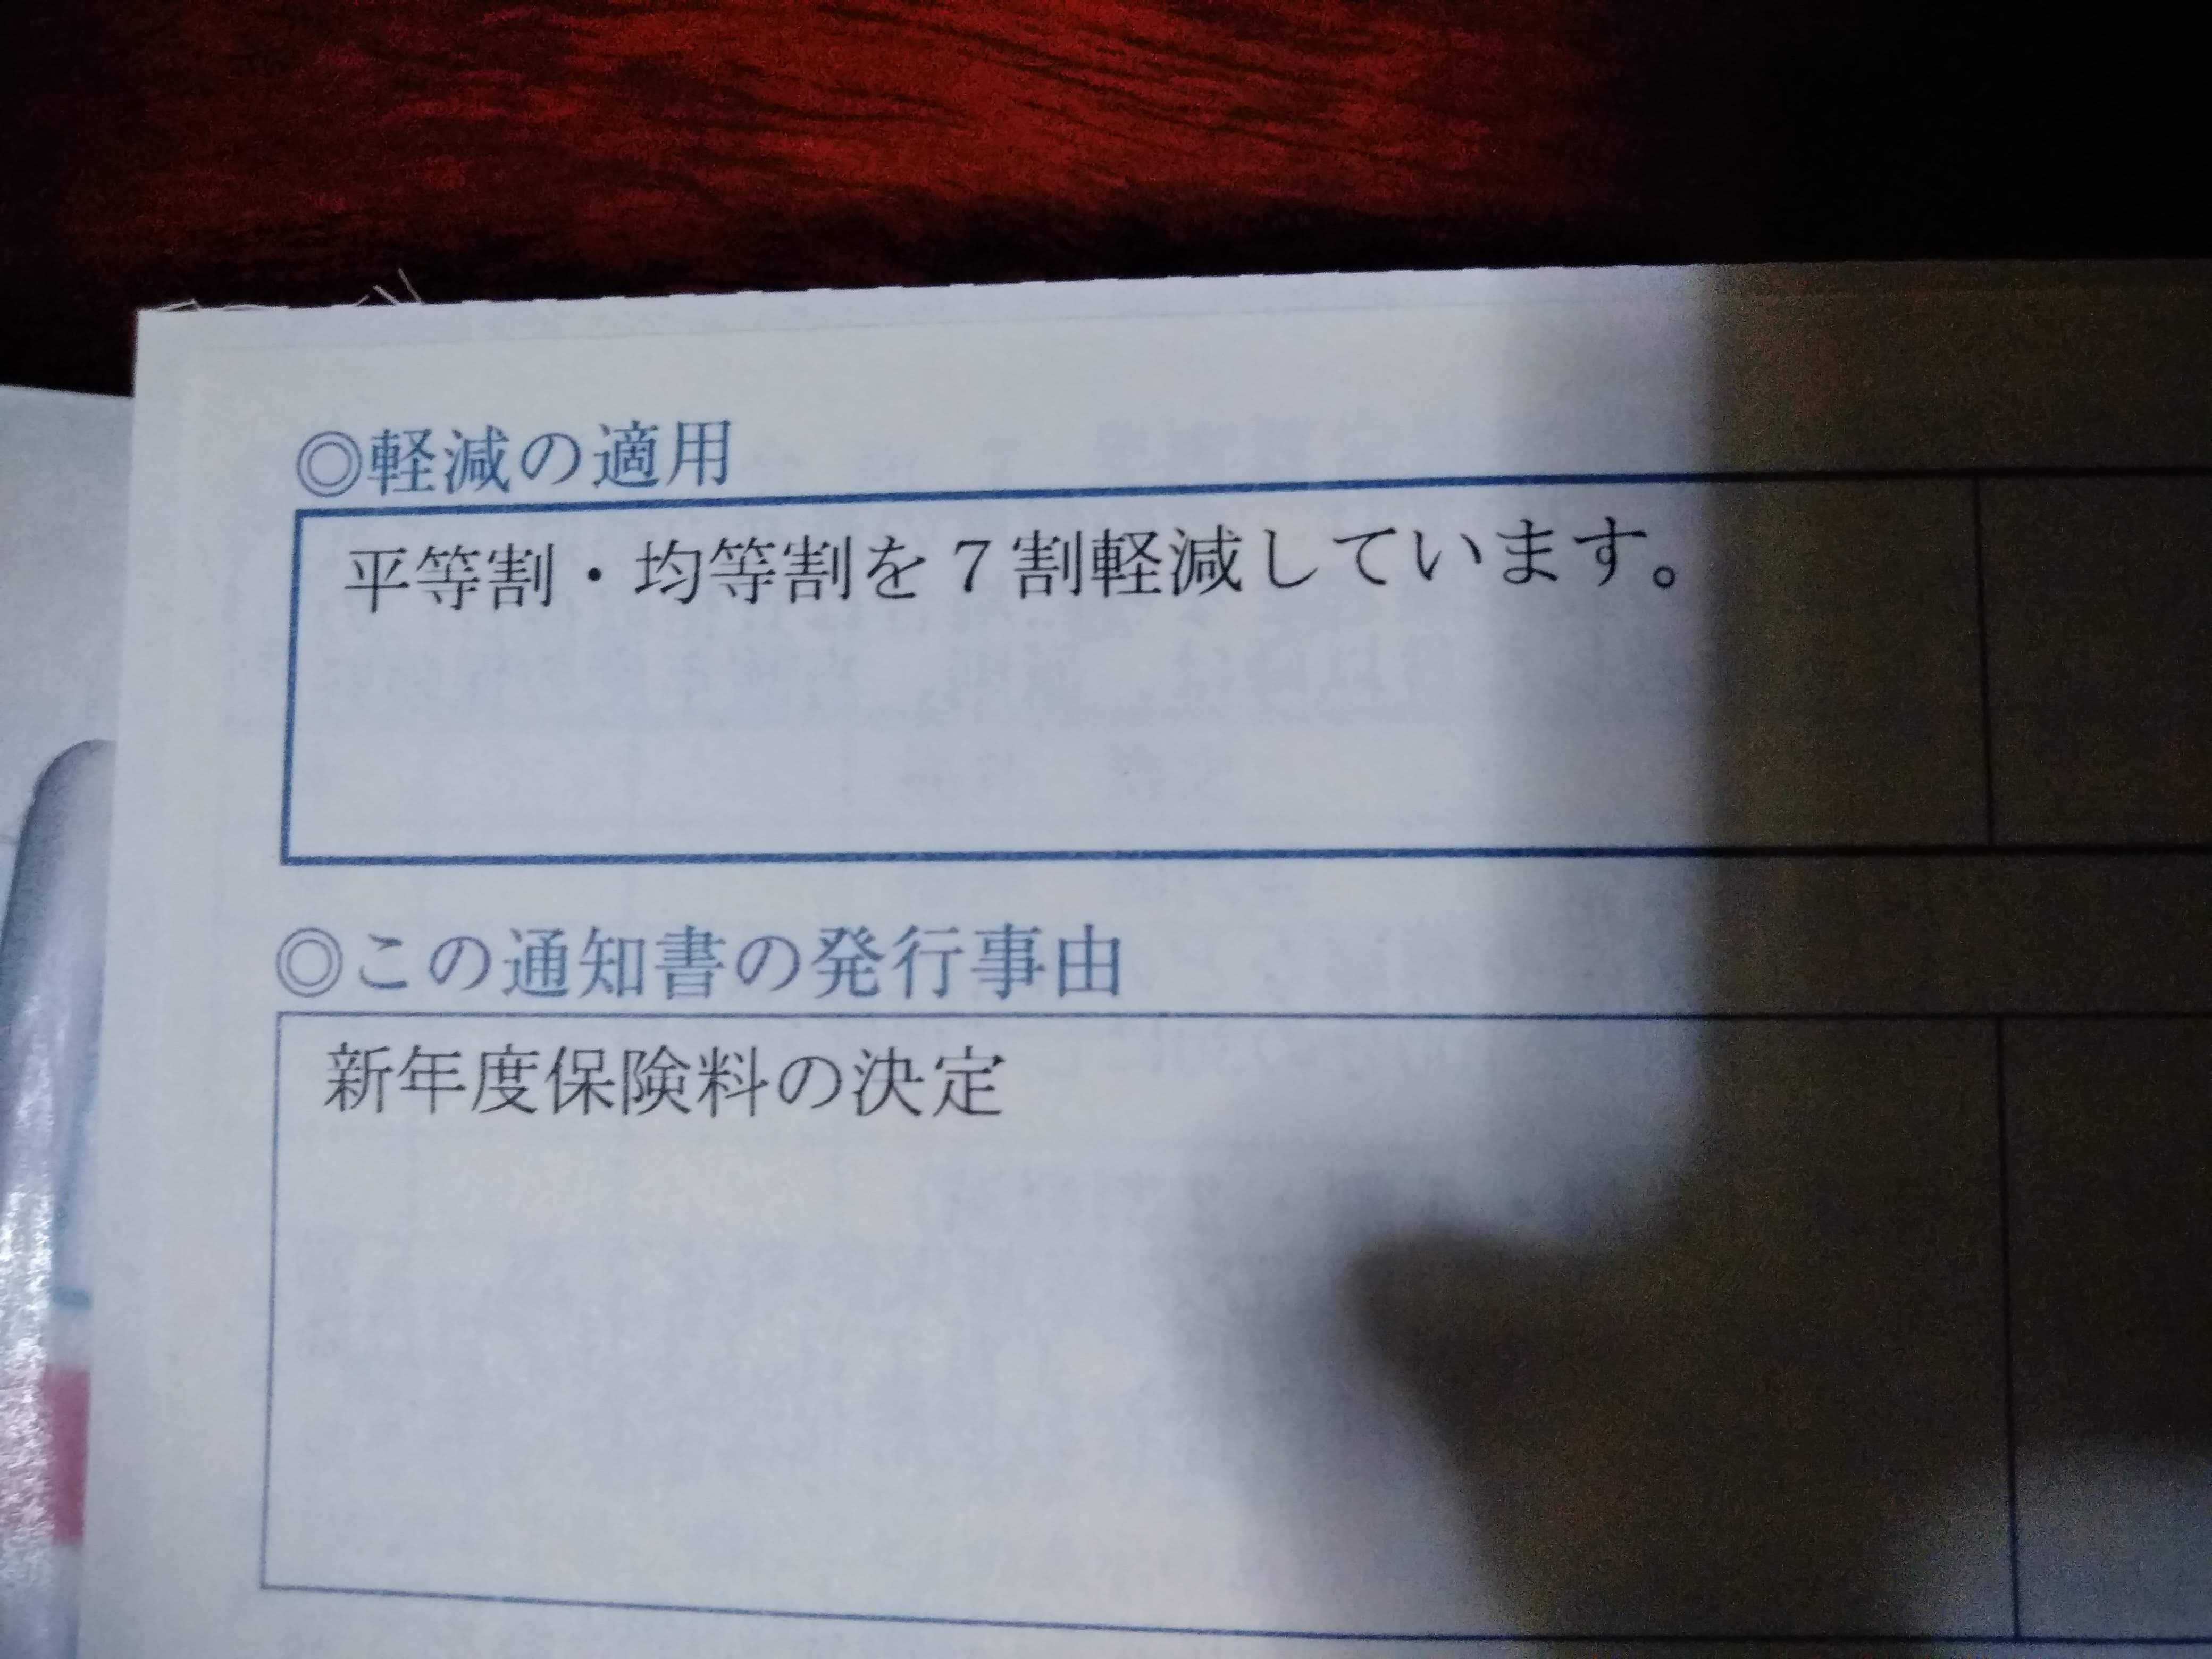 ◎軽減の適用
平等割・均等割を７割軽減しています。
◎この通知書の発行事由
新年度保険料の決定